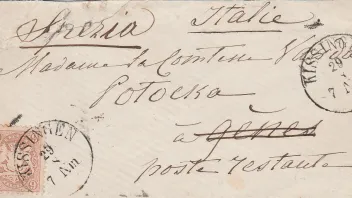 Spezia Italie
Madame la Comtesse
Potocka
à Gênes
poste restante
KISSINGEN
29
7
KISSINGEN
29
7 Nm